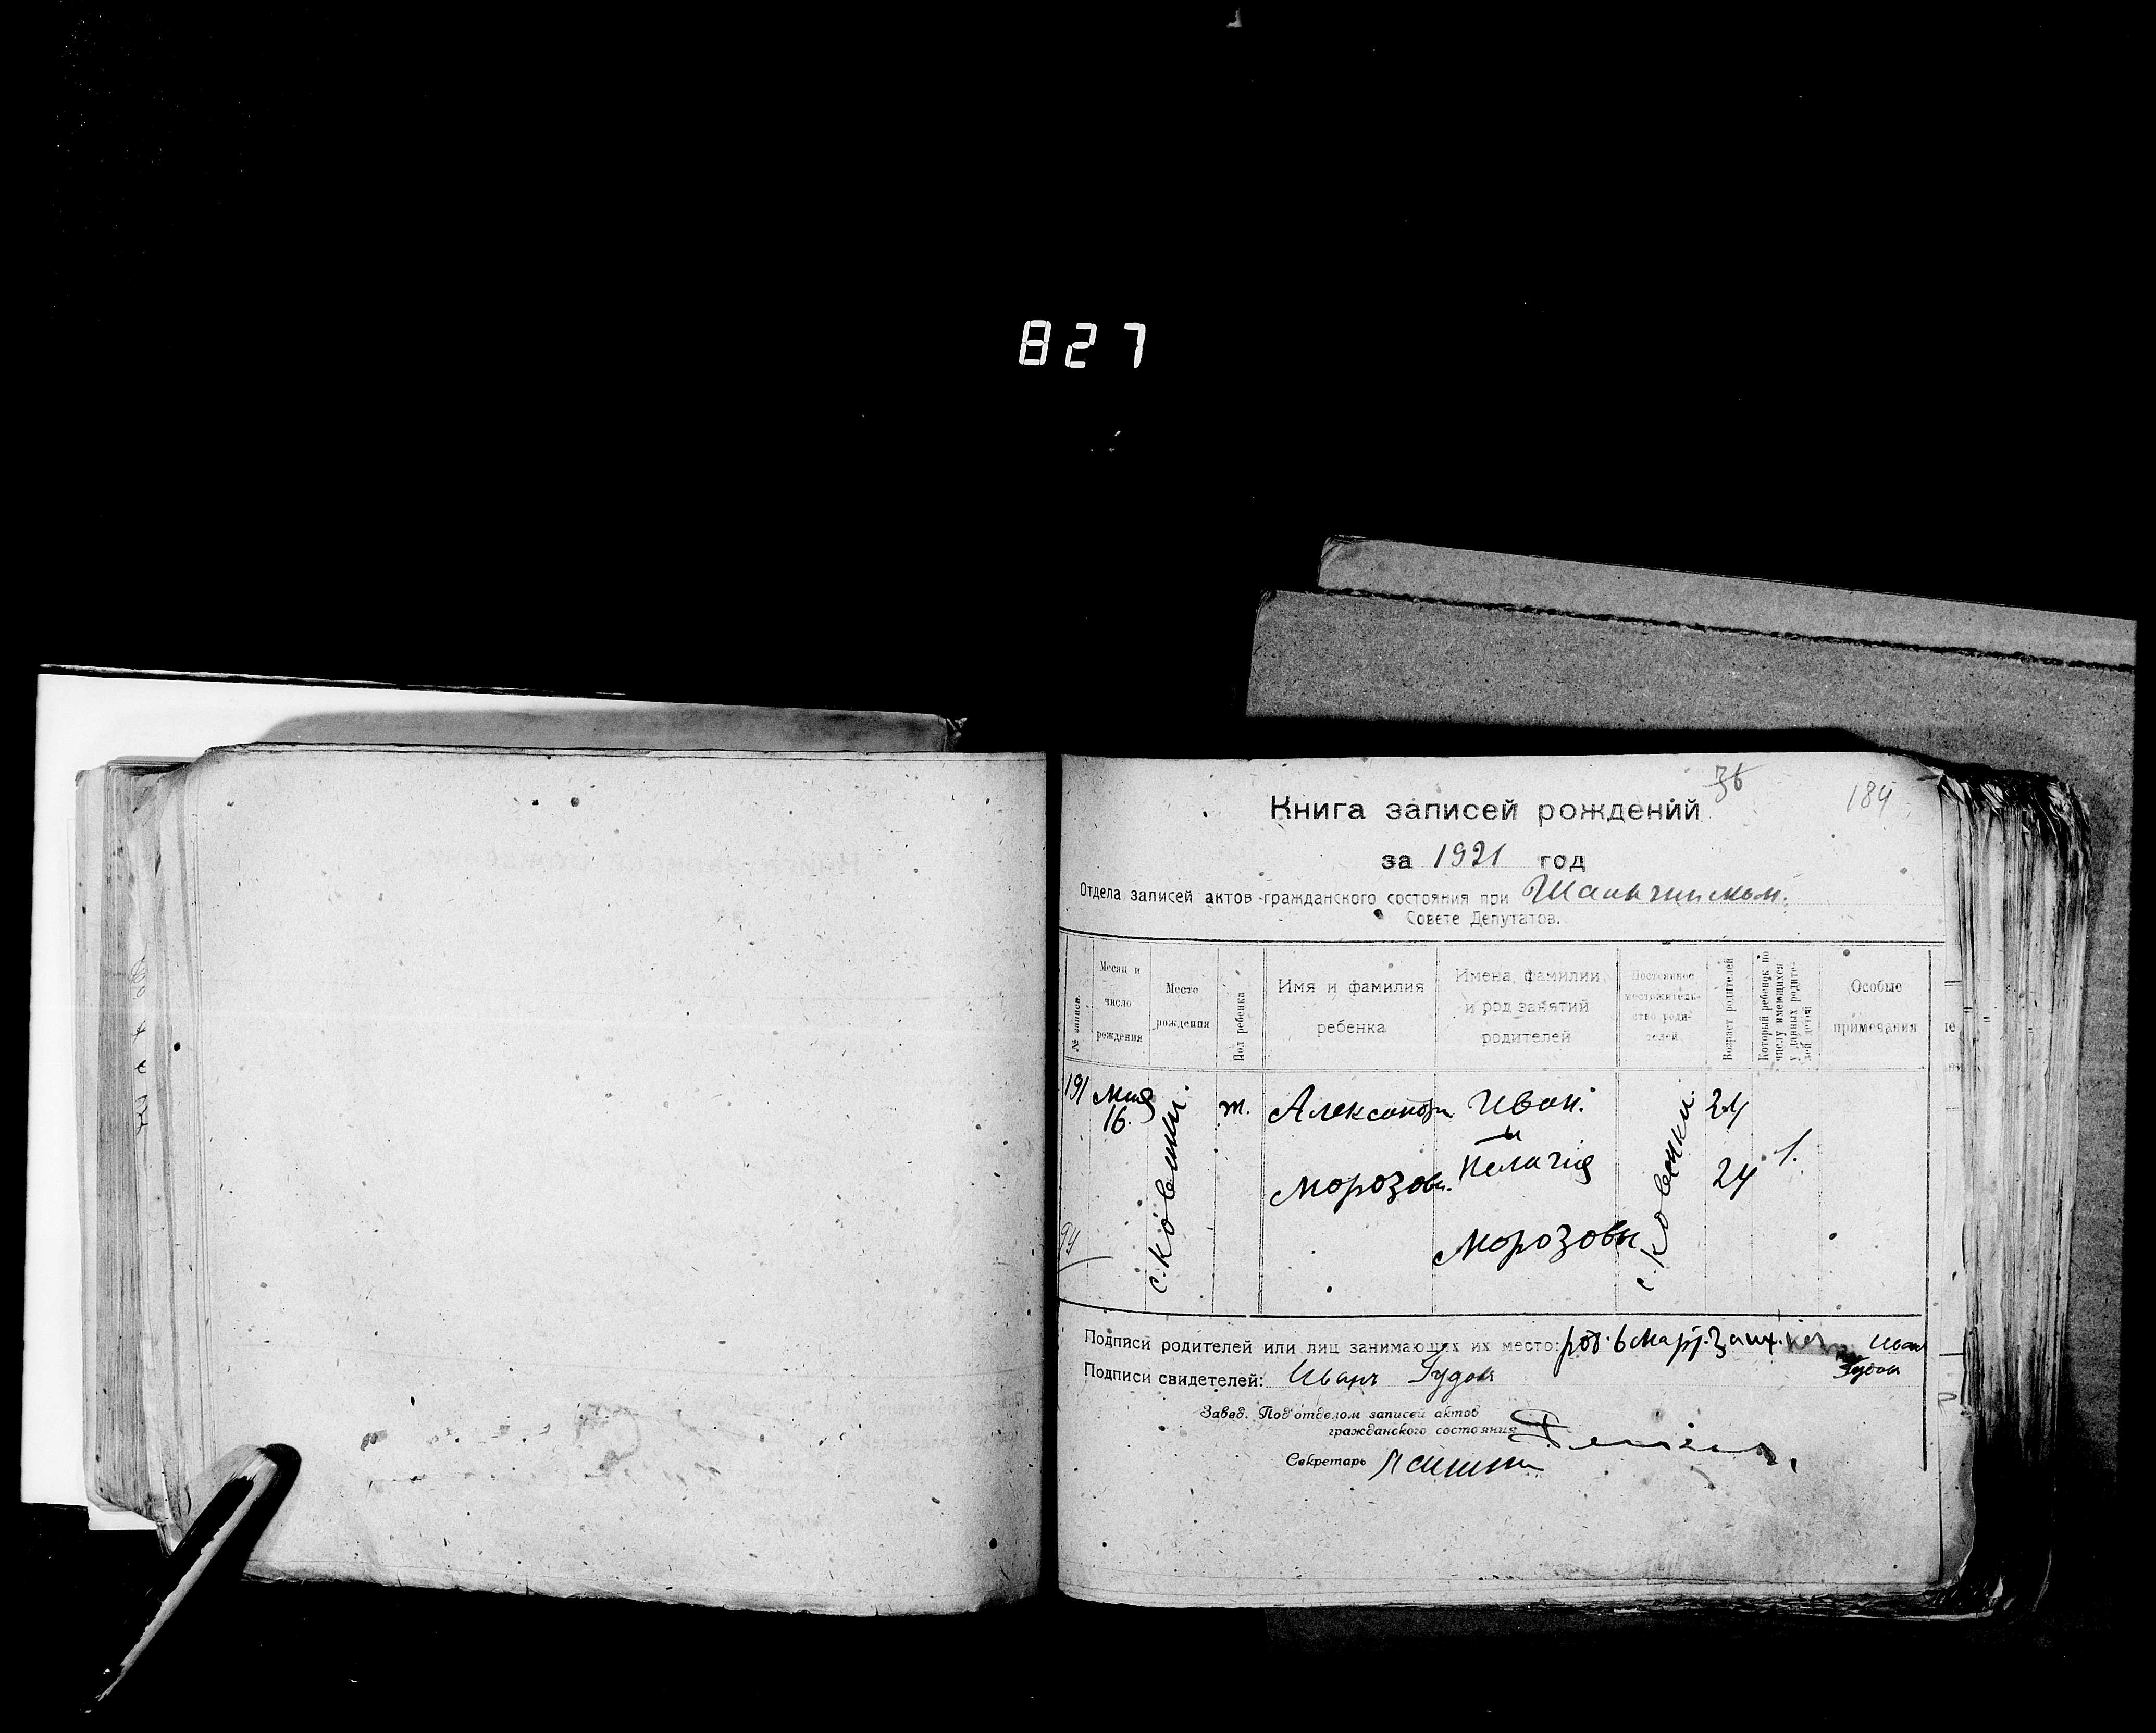 827
36
184
Книга записей рождений
за 1921 год
Отдела записей актов гражданского состояния при
Совете Депутатов.
№ записи.
Месяц и число рождения
Место рождения
Пол ребенка
Имя и фамилия ребенка
Имена, фамилии и род занятий родителей
Постоянное местожительство родителей.
Возраст родителей
Который ребенок по числу имеющихся у данных родителей детей
Особые примечания
191
Мая 16.
с. Ковенки.
м.
Александр Морозов.
Иван. и Пелагия Морозовы
с. Ковенки.
24
24
1.
94
Подписи родителей или лиц занимающих их место: Иван
Подписи свидетелей: Иванъ Гудов
Завед. Подотделом записей актов
гражданского состояния
Секретарь